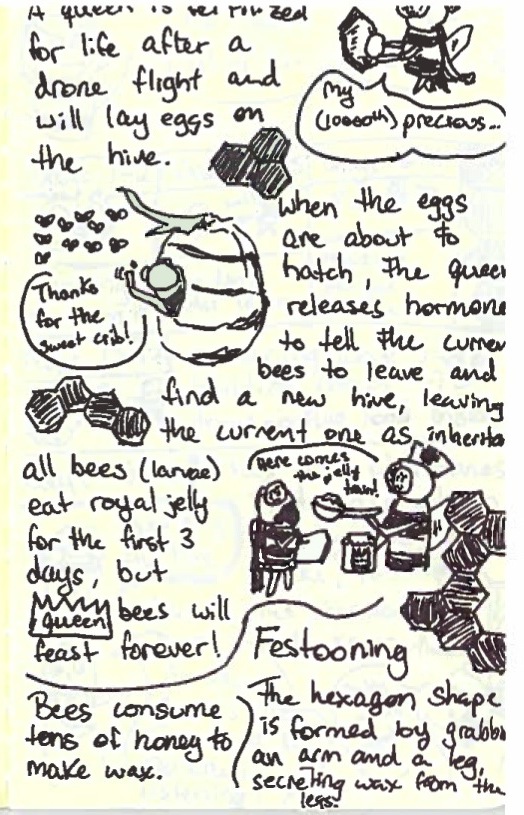 A queen is fertilized
for life after a
drone flight and
will lay eggs on
the hive.
My
(10000th) precious...
when the eggs
are about to
hatch, the queen
releases hormone
to tell the curren
bees to leave and
find a new hive, leaving
the current one as inherita
Thanks
for the
sweet crib!
all bees (larvae)
eat royal jelly
for the first 3
days, but
queen bees will
feast forever!
Here comes
the jelly
train!
Bees consume
tons of honey to
make wax.
Festooning
The hexagon shape
is formed by grabbi
an arm and a leg,
secreting wax from the
legs.